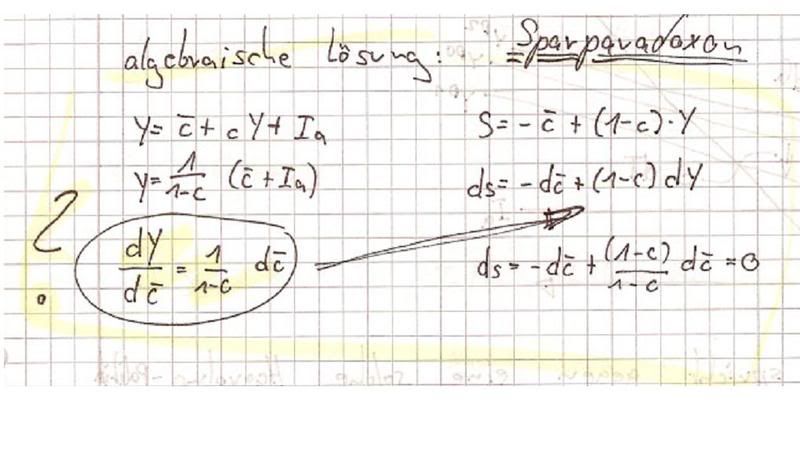 algebraische Lösung: =Sparparadoxon
Y = c̄ + cY + Ia
Y = 1/(1-c) (c̄ + Ia)
? dY/dc̄ = 1/(1-c) dc̄
S = -c̄ + (1-c)·Y
ds = -dc̄ + (1-c) dY
ds = -dc̄ + (1-c)/(1-c) dc̄ = 0